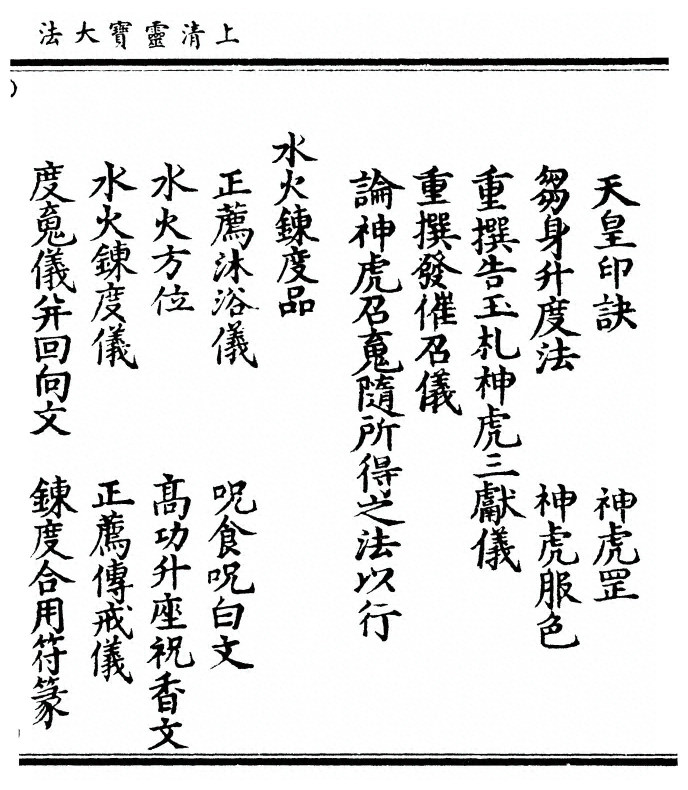 上清靈寶大法
天皇印訣　神虎罡
芻身升度法　神虎服色
重撰告玉札神虎三獻儀
重撰發催召儀
論神虎召䰟隨所得之法以行
水火鍊度品
正薦沐浴儀　呪食呪白文
水火方位　高功升座祝香文
水火鍊度儀　正薦傳戒儀
度䰟儀并回向文　鍊度合用符篆